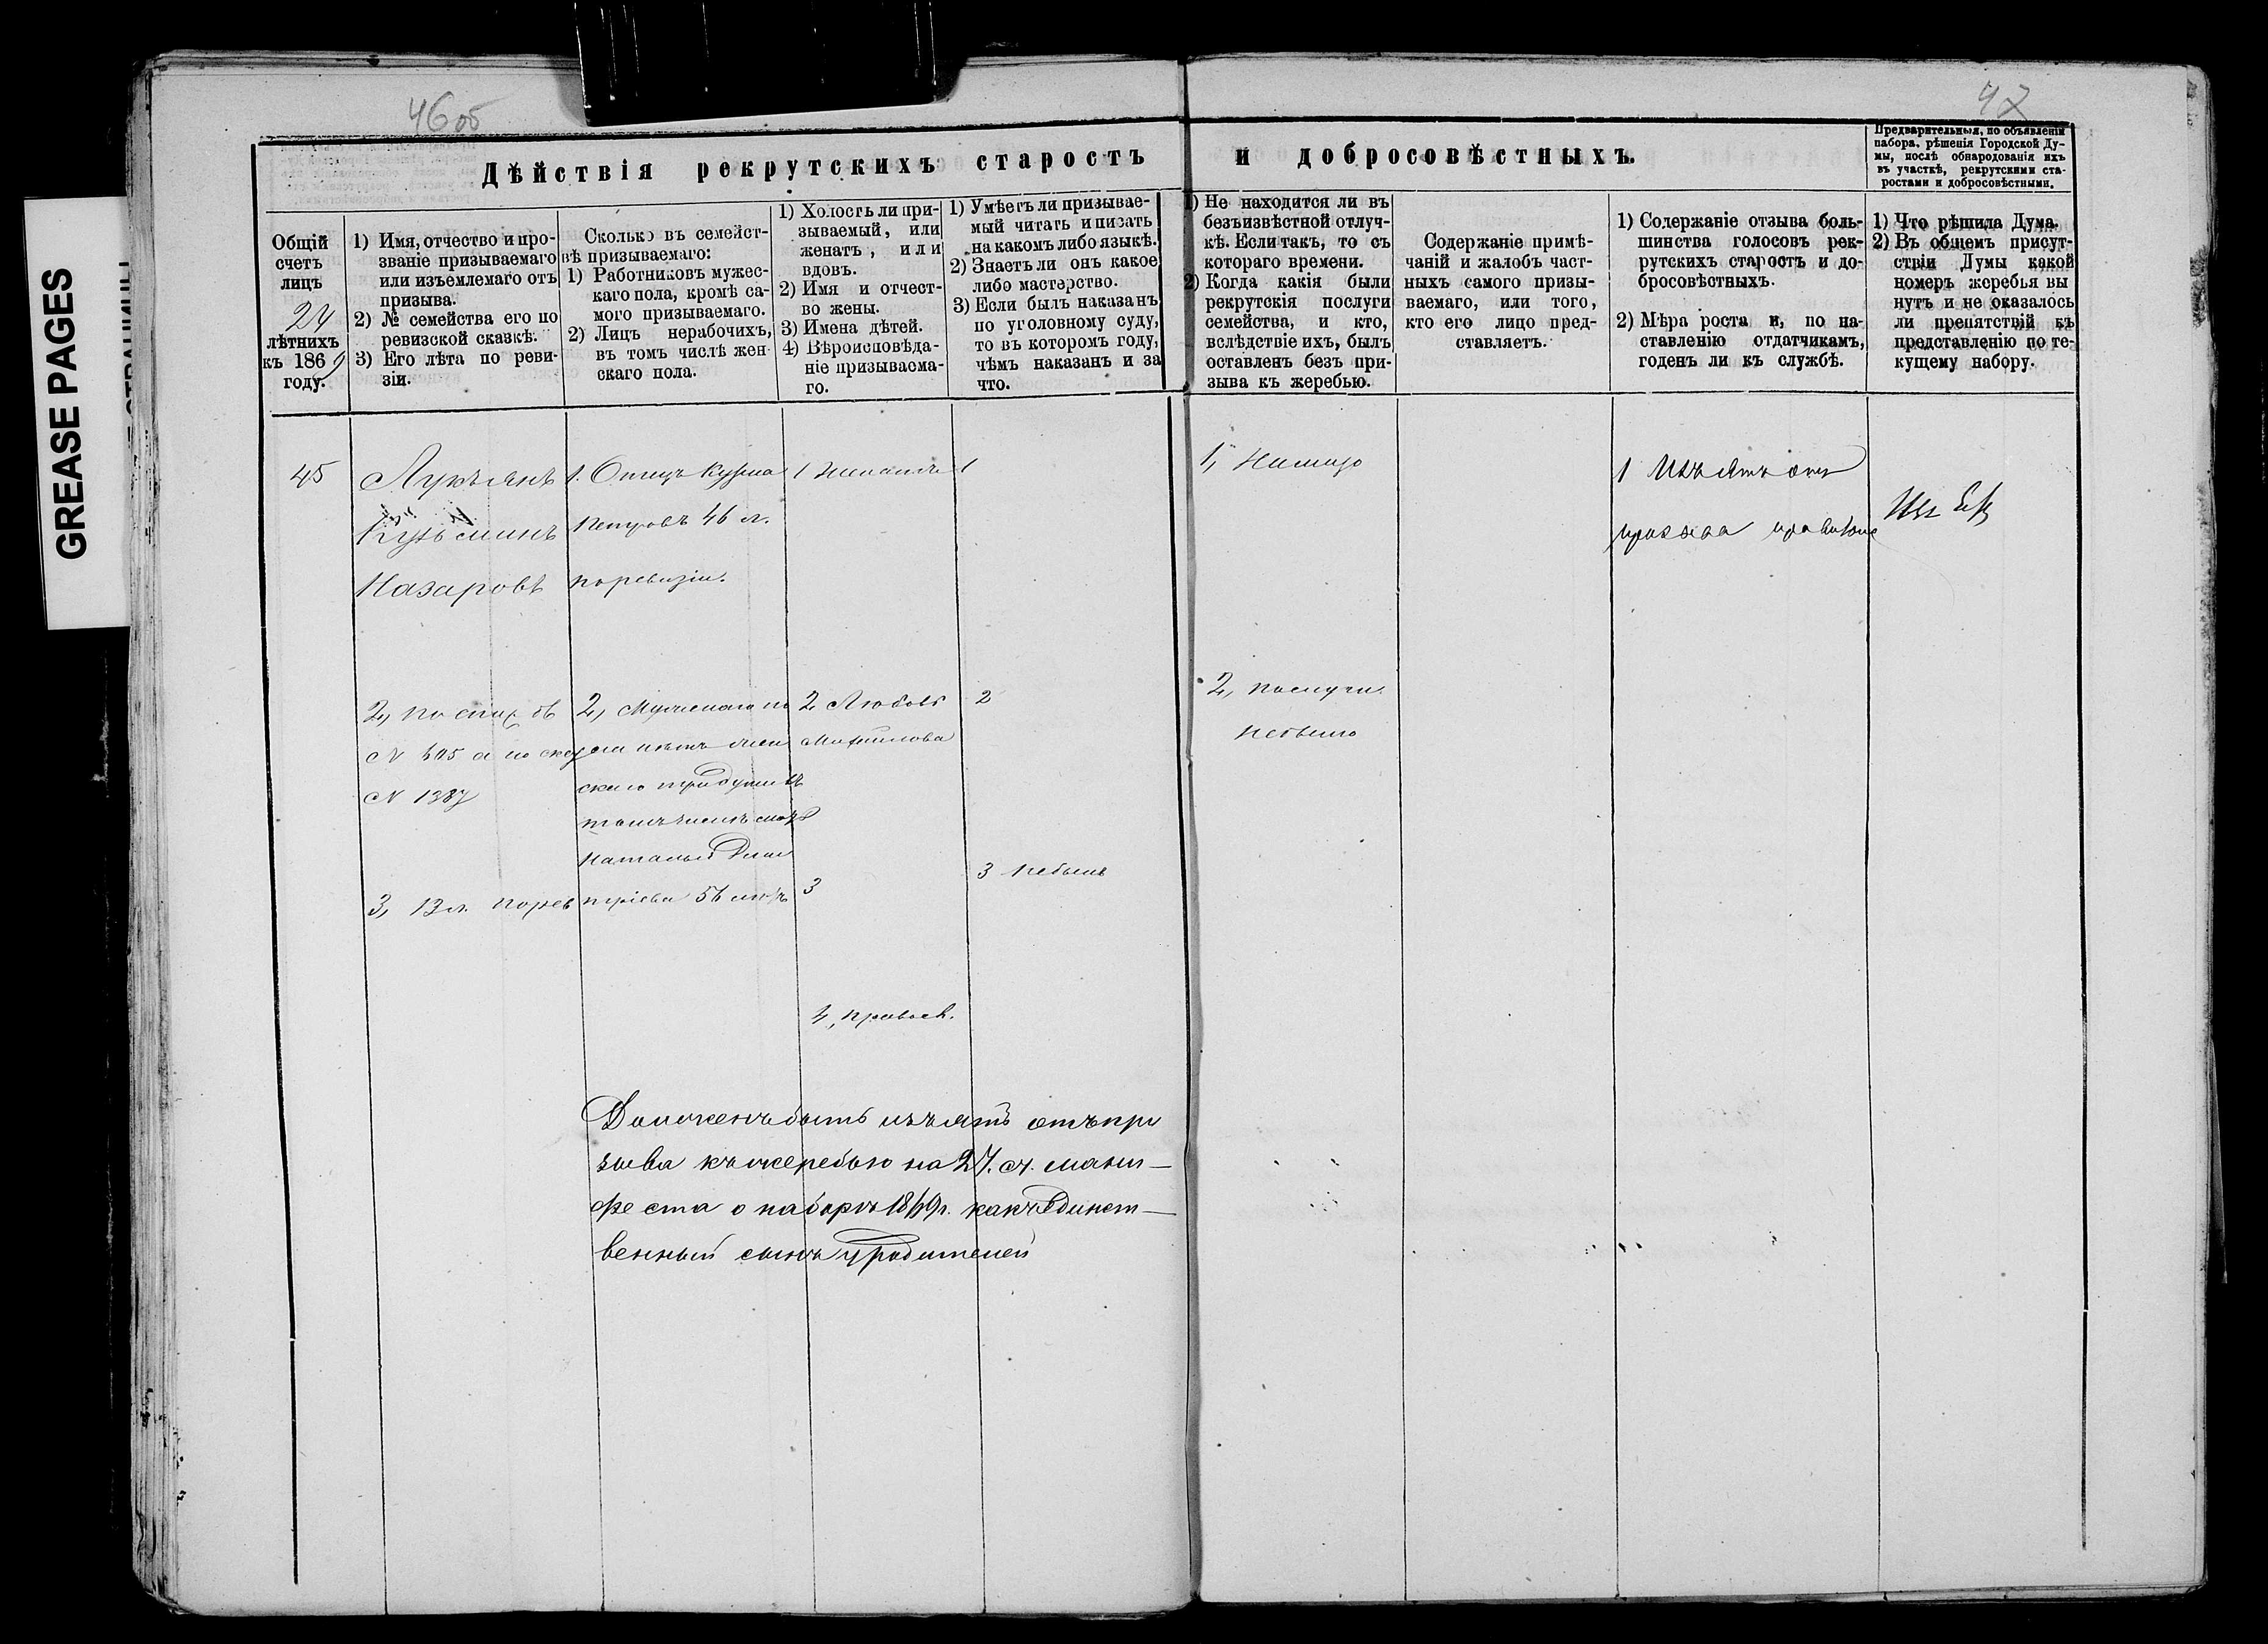 GREASE PAGES
46 об
47
Дѣйствія рекрутскихъ старостъ и добросовѣстныхъ.
Предварительныя, по объявленіи
набора, рѣшенія Городской Ду-
мы, послѣ обнародованія ихъ
въ участкѣ, рекрутскими ста-
ростами и добросовѣстными.
Общій
счетъ
лицъ
24
лѣтнихъ
къ 1869
году.
1) Имя, отчество и про-
званіе призываемаго
или изъемлемаго отъ
призыва.
2) № семейства его по
ревизской сказкѣ.
3) Его лѣта по реви-
зіи.
Сколько въ семейст-
вѣ призываемаго:
1) Работниковъ мужес-
каго пола, кромѣ са-
мого призываемаго.
2) Лицъ нерабочихъ,
въ томъ числѣ жен-
скаго пола.
1) Холостъ ли при-
зываемый, или
женатъ, или
вдовъ.
2) Имя и отчест-
во жены.
3) Имена дѣтей.
4) Вѣроисповѣда-
ніе призываема-
го.
1) Умѣетъ ли призывае-
мый читать и писать
на какомъ либо языкѣ.
2) Знаетъ ли онъ какое
либо мастерство.
3) Если былъ наказанъ
по уголовному суду,
то въ которомъ году,
чѣмъ наказанъ и за
что.
1) Не находится ли въ
безъизвѣстной отлуч-
кѣ. Если такъ, то съ
котораго времени.
2) Когда какія были
рекрутскія послуги
семейства, и кто,
вслѣдствіе ихъ, былъ
оставленъ безъ при-
зыва къ жеребью.
Содержаніе примѣ-
чаній и жалобъ част-
ныхъ самого призы-
ваемаго, или того,
кто его лицо пред-
ставляетъ.
1) Содержаніе отзыва боль-
шинства голосовъ рек-
рутскихъ старостъ и до-
бросовѣстныхъ.
2) Мѣра роста и, по на-
ставленію отдатчикамъ,
годенъ ли къ службѣ.
1) Что рѣшила Дума.
2) Въ общемъ присут-
ствіи Думы какой
номеръ жеребья вы
нутъ и не оказалось
ли препятствій къ
представленію по те-
кущему набору.
45
Лукъянъ
Кузьминъ
Назаровъ
2, по
N 405 а по
N 1387
3, 13 л. порев
1. Отецъ Кузма
Петровъ 46 л.
поревизіи.
2, Мужескаго по
ла нѣтъ жен
скаго три души въ
томъ числѣ мать
Наталья Дми
тріева 51 лѣтъ
1 Женатъ
2 Любовь
3
4, правосл.
1
2
3 Небылъ
1,
2, послуги
небыло
1 Изъятъ отъ
Должень быть изъятъ отъ при
зыва къ жеребью на 27. ст. мани-
феста о наборѣ 1869 г. какъ Единст-
венный сынъ у родителей